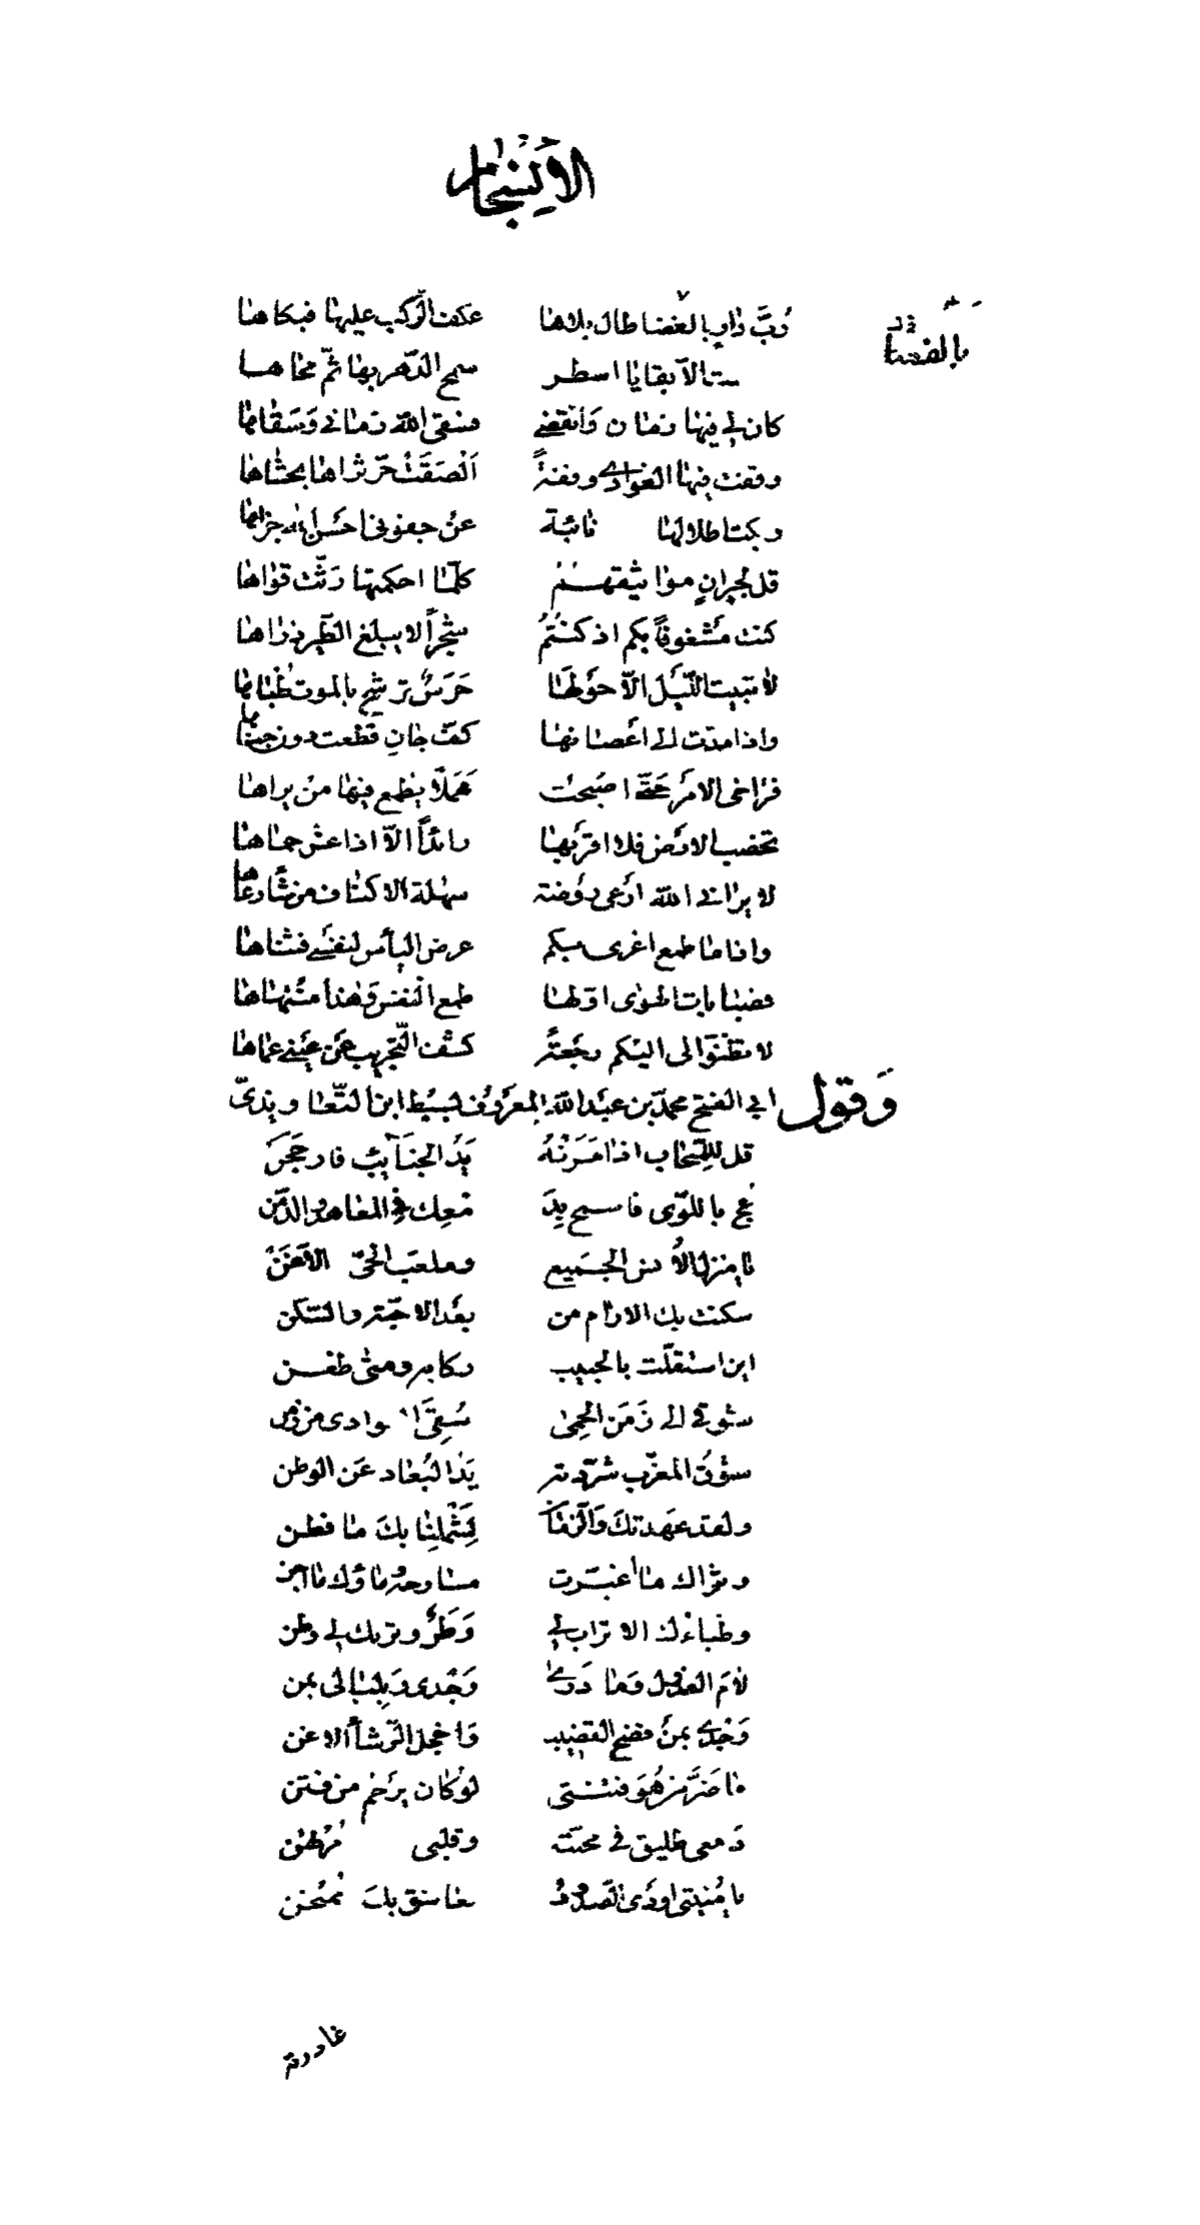 الانسجام
رُبَّ دارٍ بالغضا طال بلاها عكف الركب عليها فبكاها
بالغضا
الا بقايا اسطر سمح الدهر بها ثمّ محاها
كان لي فيها زمان وانقضى فسقى الله زماني وسقاها
وقفت فيها الغوادي وقفةً الصقت حرّ ثراها بحشاها
وبكت اطلالها نائبة عن جفوني احسن الله جزاها
قل لجيرانٍ مواثيقهم كلّما احكمتها رثّت قواها
كنت مشغوفاً بكم اذ كنتم شجراً لا يبلغ الطير ذراها
لا تبيت الليل الّا حولها حرسٌ ترشح بالموت ظباها
واذا مدّت الى اغصانها كفّ جانٍ قطعت دون جناها
فتراخى الامر حتى اصبحت هملاً يطمع فيها من يراها
تخصب الارض فلا اقربها رائداً الّا اذا عزّ حماها
لا يراني الله ارعى روضة سهلة الاكناف من شا رعاها
واذا ما طمع اغرى بكم عرض اليأس لنفسي فثناها
فصبابات الهوى اوّلها طمع النفس وهذا منتهاها
لا تظنّوا لي اليكم رجعةً كشف التجريب عن عيني عماها
وقول ابي الفتح محمد بن عبد الله المعروف بسبط ابن التعاويذيّ
قل للسحاب اذا مرته يد الجنائب فارجحن
عج باللوى فاسمح بد معك في المعاهد والدمن
يا منزل الانس الجميع وملعب الحيّ الاغن
سكنت بك الارام من بعد الاحبة والسكن
اين استقلت بالحبيب ركابه ومتى ظعن
شوقي الى زمن الحمى سقي ا وادي من زمن
شوق المغرّب شرّدته يد البعاد عن الوطن
ولقد عهدتك والزمان بشملنا بك ما فطن
وثراك ما اغبرّت مسارحه وماؤك ما اجن
وظباؤك الاتراب لي وطرٌ وتربك لي وطن
لام العذول وما درى وجدي وبلبالي بمن
وجدي بمن فضح القضيب واخجل الرشأ الاغن
ما ضرّ من هو فتنتي لو كان يرحم من فتن
دمعي طليق في محبّته وقلبي مرتهن
يا منيتي اودى الصدود بعاشق بك ممتحن
غادرته